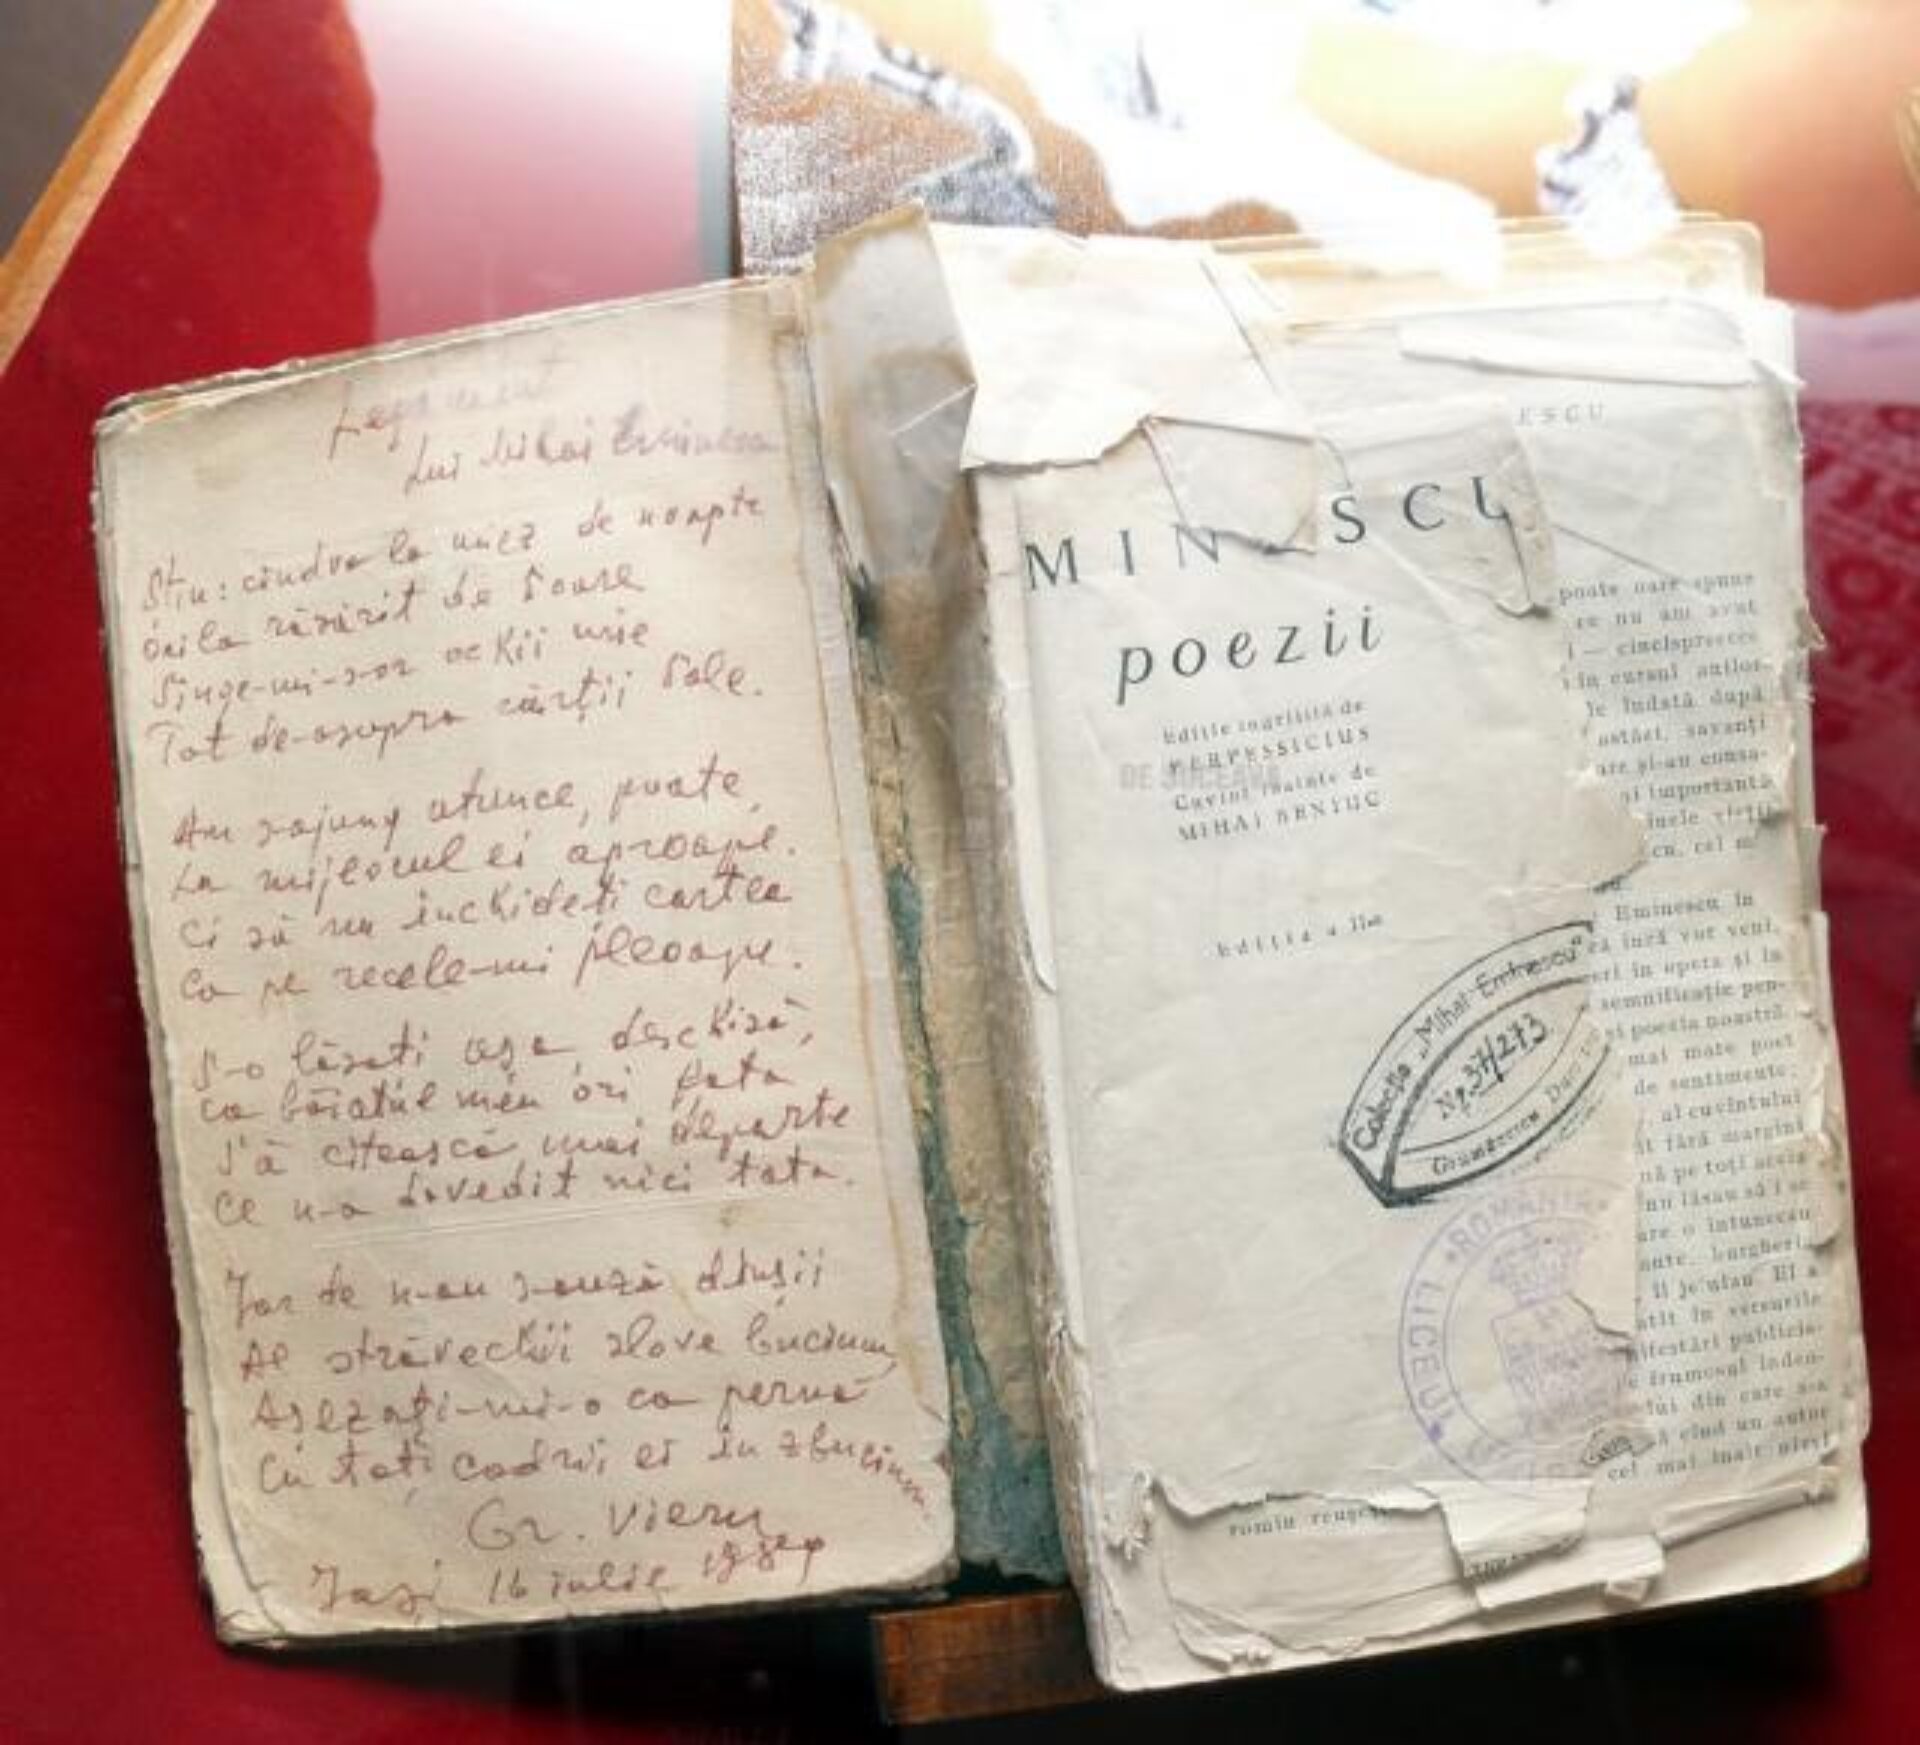 Legământ
Lui Mihai Eminescu
Știu: cîndva la miez de noapte
Ori la răsărit de Soare
Stinge-mi-s-or ochii mie
Tot de-asupra cărții Sale.
Am s-ajung atunce, poate,
La mijlocul ei aproape.
Ci să nu închideți cartea
Ca pe recele-mi pleoape.
S-o lăsați așa deschisă,
Ca băiatul meu ori fata
Să citească mai departe
Ce n-a dovedit nici tata.
Iar de n-au s-auză dînșii
Al străvechii slove bucium,
Așezați-mi-o ca pernă
Cu toți codrii ei în zbucium.
Gr. Vieru
Iași 16 iulie
ESCU
MIN SCU
poezii
Ediție îngrijită de
PERPESSICIUS
DE SUCEAVA
Cuvînt înainte de
MIHAI BENIUC
Ediția a II-a
Colecția „Mihai Eminescu"
Nr. 37/273
ROMÂNIA
LICEUL
poate oare spune
ce nu am avut
i — cincisprezece
în cursul anilor
le îndată după
astăzi, savanți
are și-au consa-
importantă
Eminescu în
că încă vor veni,
eri în opera și în
semnificație pen-
și poezia noastră.
mai mare poet
de sentimente,
al cuvîntului
it fără margini
nă pe toți aceia
nu lăsau să i se
are o întunecau
ante, burgheri
îl jeluiau. El a
atît în versurile
ifestări publicis-
e frumosul înden-
lui din care s-a
ă cînd un autor
cel mai înalt nivel
romîn